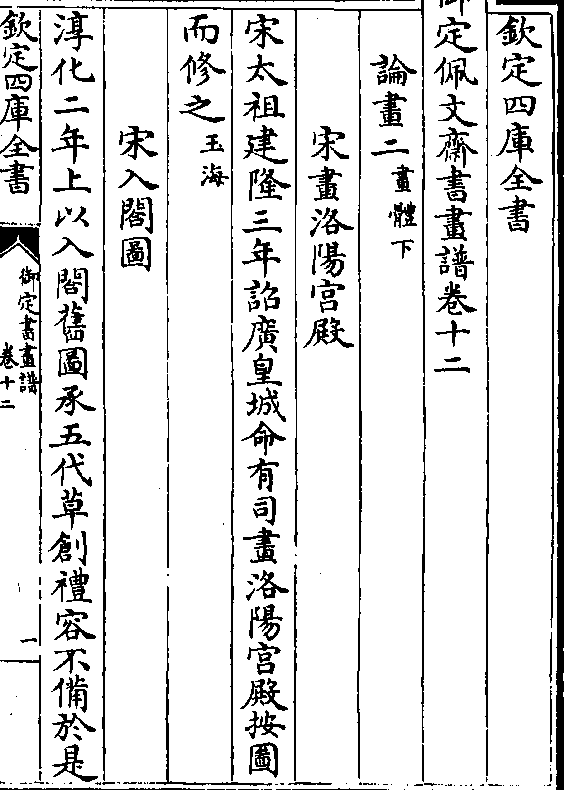 欽定四庫全書
御定佩文齋書畫譜卷十二
論畫二畫體下
宋畫洛陽宮殿
宋太祖建隆三年詔廣皇城命有司畫洛陽宮殿按圖
而修之玉海
宋入閤圖
淳化二年上以入閤舊圖承五代草創禮容不備於是
欽定四庫全書
御定書畫譜
卷十二
一